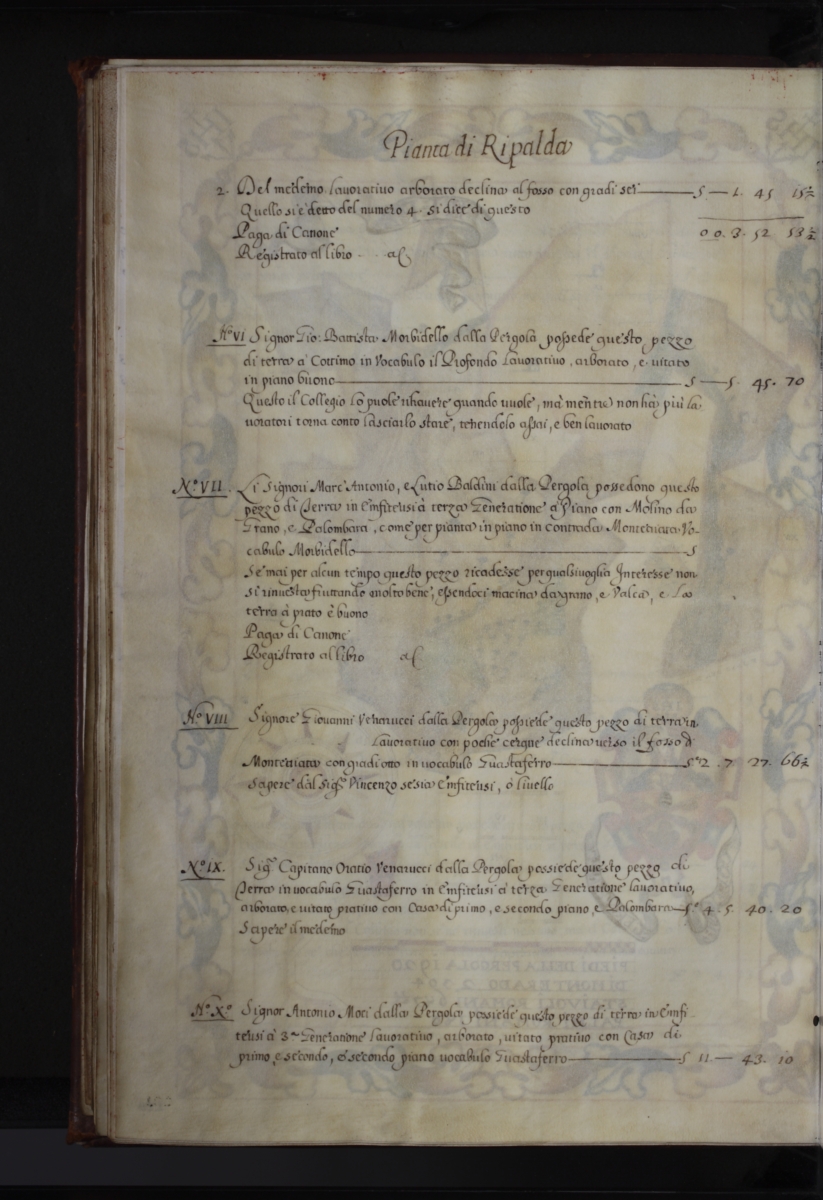 Pianta di Ripalda
2. Del medemo lavorativo arborato declina al fosso con gradi sei — S — 1. 45 15½
Quello si è detto del numero 4 si dice di questo
Paga di Canone 0 0. 3. 52 53½
Registrato al libro ac
N.o VI Signor Gio: Battista Morbidello dalla Pergola possede questo pezzo
di terra a Cottimo in Vocabulo il Profondo Lavorativo, arborato, e vitato
in piano buono — S — 5. 45. 70
Questo il Collegio lo puole rihavere quando vuole, mà mentre non hà più la
voratori torna conto lasciarlo stare, tenendolo assai, e ben lavorato
N.o VII. Li Signori Marc' Antonio, e Lutio Baldini dalla Pergola possedono questo
pezzo di Terra in Enfiteusi à terza Generatione a Piano con Molino da
Grano, e Palombara, come per pianta in piano in contrada Monteriata Vo-
cabulo Morbidello — S
Se mai per alcun tempo questo pezzo ricadesse per qualsivoglia Interesse non
si rinvesta fruttando molto bene, essendoci macina da grano, e Valca, e La
terra à prato è buono
Paga di Canone
Registrato al libro ac
N.o VIII Signore Giovanni Venarucci dalla Pergola possiede questo pezzo di terra in
Lavorativo con poche cerque declina verso il fosso d
Monteriata con gradi otto in vocabulo Guastaferro — S 2. 7. 27. 66½
Sapere dal Sig.r Vincenzo se sia Enfiteusi, ò livello
N.o IX. Sig.r Capitano Oratio Venarucci dalla Pergola possiede questo pezzo di
Terra in vocabulo Guastaferro in Enfiteusi à terza Generatione lavorativo,
arborato, e vitato prativo con Casa di primo, e secondo piano, e Palombara — S. 4. 5. 40. 20
Sapere il medemo
N.o X.o Signor Antonio Moci dalla Pergola possiede questo pezzo di terra in Enfi
teusi à 3a Generatione Lavorativo, arborato, vitato prativo con Casa di
primo, e secondo, ò secondo piano vocabulo Guastaferro — S 11 — 43. 10